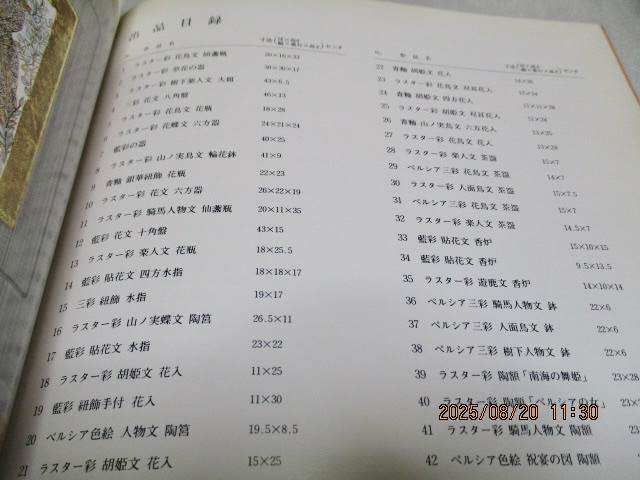 出品目録
No. 作品名 寸法(径×高さ 幅×奥行×高さ)センチ
1 ラスター彩 花鳥文 仙盞瓶 20×16×33
2 ラスター彩 草花の器 30×30×17
3 ラスター彩 樹下楽人文 大皿 43×6.5
4 三彩 花文 八角盤 46×13
5 ラスター彩 花鳥文 花瓶 18×28
6 ラスター彩 花蝶文 六方器 24×21×24
7 藍彩の器 40×25
8 ラスター彩 山ノ実鳥文 輪花鉢 41×9
9 青釉 銀華紐飾 花瓶 22×23
10 ラスター彩 花文 六方器 26×22×19
11 ラスター彩 騎馬人物文 仙盞瓶 20×11×35
12 藍彩 花文 十角盤 43×15
13 ラスター彩 楽人文 花瓶 18×25.5
14 藍彩 貼花文 四方水指 18×18×17
15 三彩 紐飾 水指 19×17
16 ラスター彩 山ノ実蝶文 陶筥 26.5×11
17 藍彩 貼花文 水指 23×22
18 ラスター彩 胡姫文 花入 11×25
19 藍彩 紐飾手付 花入 11×30
20 ペルシア色絵 人物文 陶筥 19.5×8.5
21 ラスター彩 胡姫文 花入 15×25
No. 作品名 寸法(径×高さ 幅×奥行×高さ)センチ
22 青釉 胡姫文 花入 14×25
23 ラスター彩 花鳥文 双耳花入 15×24
24 青釉 胡姫文 四方花入 11×11×28
25 ラスター彩 胡姫文 双耳花入 13×24
26 青釉 山ノ実文 六方花入 13×25
27 ラスター彩 花鳥文 花入 13×28
28 ラスター彩 楽人文 茶盌 15×7
29 ペルシア三彩 花鳥文 茶盌 14×7
30 ラスター彩 人面鳥文 茶盌 15×7.5
31 ペルシア三彩 花鳥文 茶盌 15×7
32 ラスター彩 楽人文 茶盌 14.5×7
33 藍彩 貼花文 香炉 15×10×15
34 藍彩 貼花文 香炉 9.5×13.5
35 ラスター彩 遊鹿文 香炉 14×10×14
36 ペルシア三彩 騎馬人物文 鉢 22×6
37 ペルシア三彩 人面鳥文 鉢 22×6
38 ペルシア三彩 樹下人物文 鉢 22×6
39 ラスター彩 陶額「南海の舞姫」 23×28
40 ラスター彩 陶額「ペルシアの女」 23×2
41 ラスター彩 騎馬人物文 陶額 23×
42 ペルシア色絵 祝宴の図 陶額 2
2025/08/20 11:30